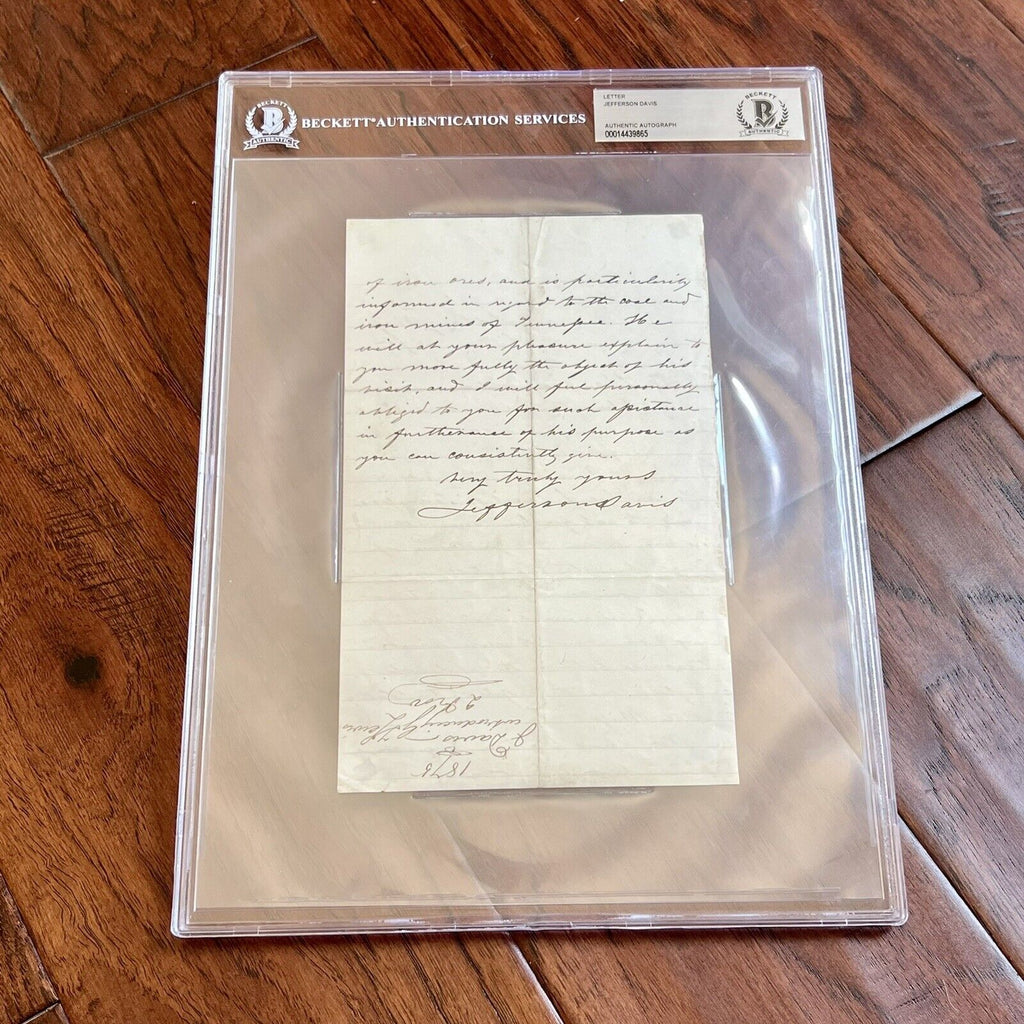 BECKETT
B
AUTHENTIC
BECKETT AUTHENTICATION SERVICES
LETTER
JEFFERSON DAVIS
AUTHENTIC AUTOGRAPH
00014439865
BECKETT
B
AUTHENTIC
of iron ores, and is particularly
informed in regard to the coal and
iron mines of Tennessee. He
will at your pleasure explain to
you more fully the object of his
visit, and I will feel personally
obliged to you for such assistance
in furtherance of his purpose as
you can consistently give.
Very truly yours
Jefferson Davis
1875
J Davis
introducing
2 Nov